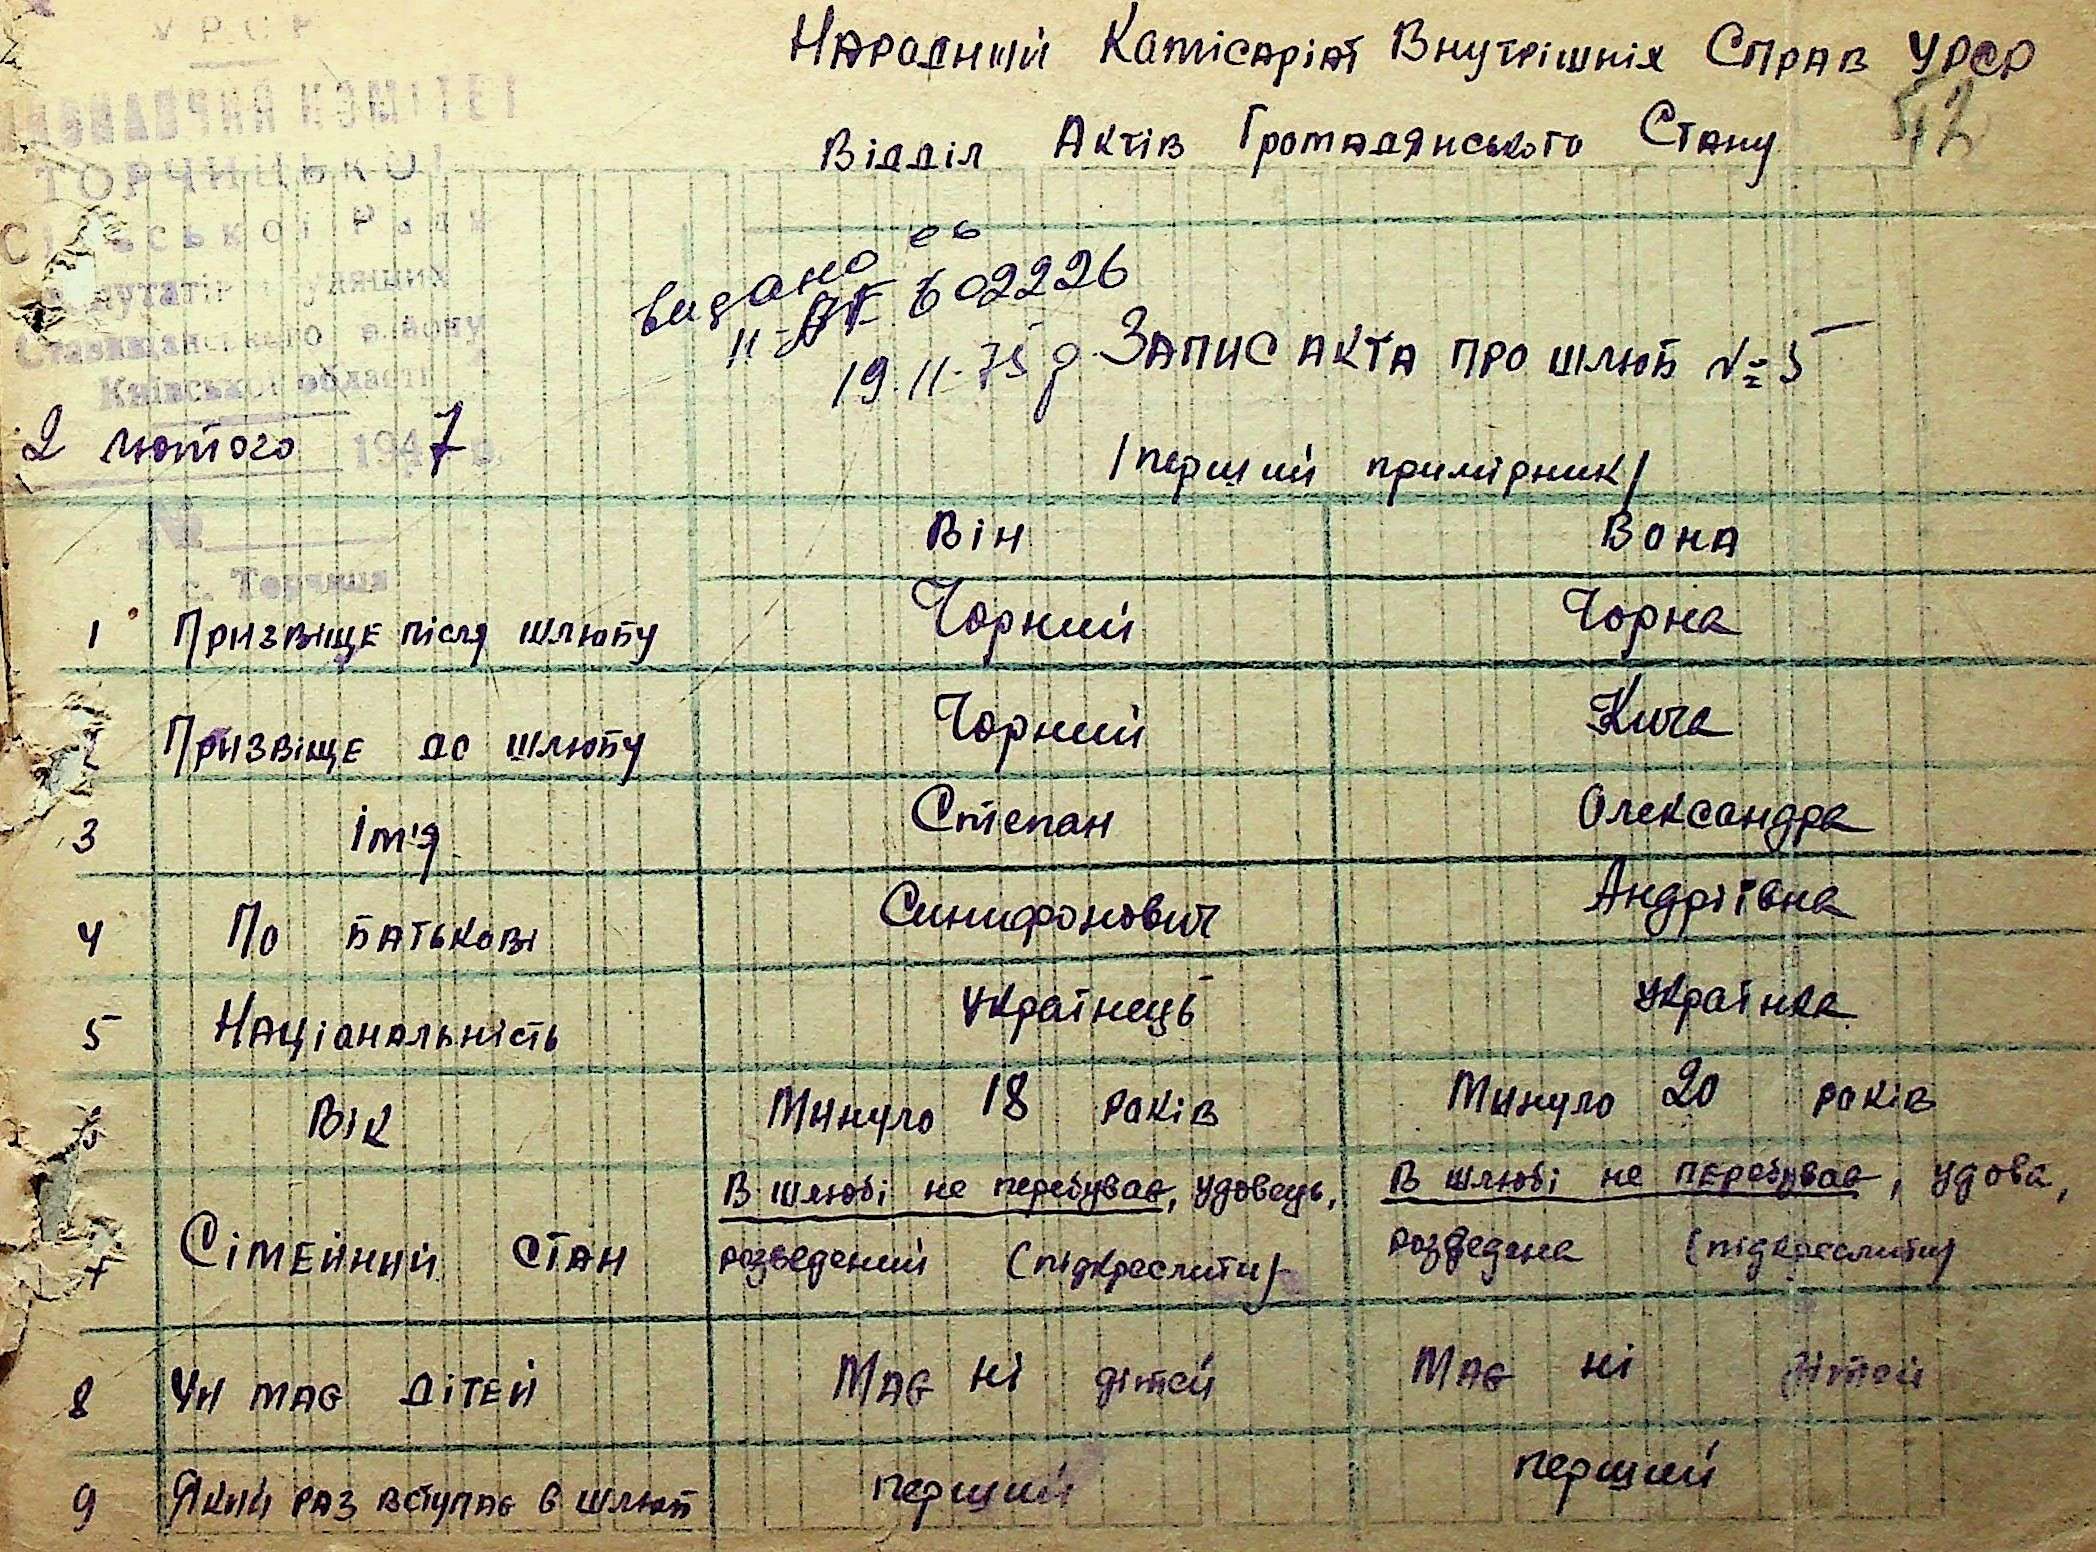 УРСР
Народний Комісаріат Внутрішніх Справ УРСР
12
Відділ Актів Громадянського Стану
ВИКОНАВЧИЙ КОМІТЕТ
ТОРЧИЦЬКОЇ
Сільської Ради
депутатів трудящих
Ставищанського району
Київської області
видано св
II-АГ 602226
19.11.75 р
Запис акта про шлюб № 5
2 лютого 1947 р.
/перший примірник/
№
с. Торчиця
Він Вона
1 Призвіще після шлюбу Чорний Чорна
2 Призвіще до шлюбу Чорний Кича
3 Ім'я Степан Олександра
4 По батькові Синифонович Андріївна
5 Національність Українець Українка
6 Вік Минуло 18 років Минуло 20 років
7 Сімейний стан В шлюбі не перебуває, удовець, В шлюбі не перебуває, удова,
розведений (підкреслити) розведена (підкреслити)
8 Чи має дітей Має ні дітей Має ні дітей
9 Який раз вступає в шлюб перший перший